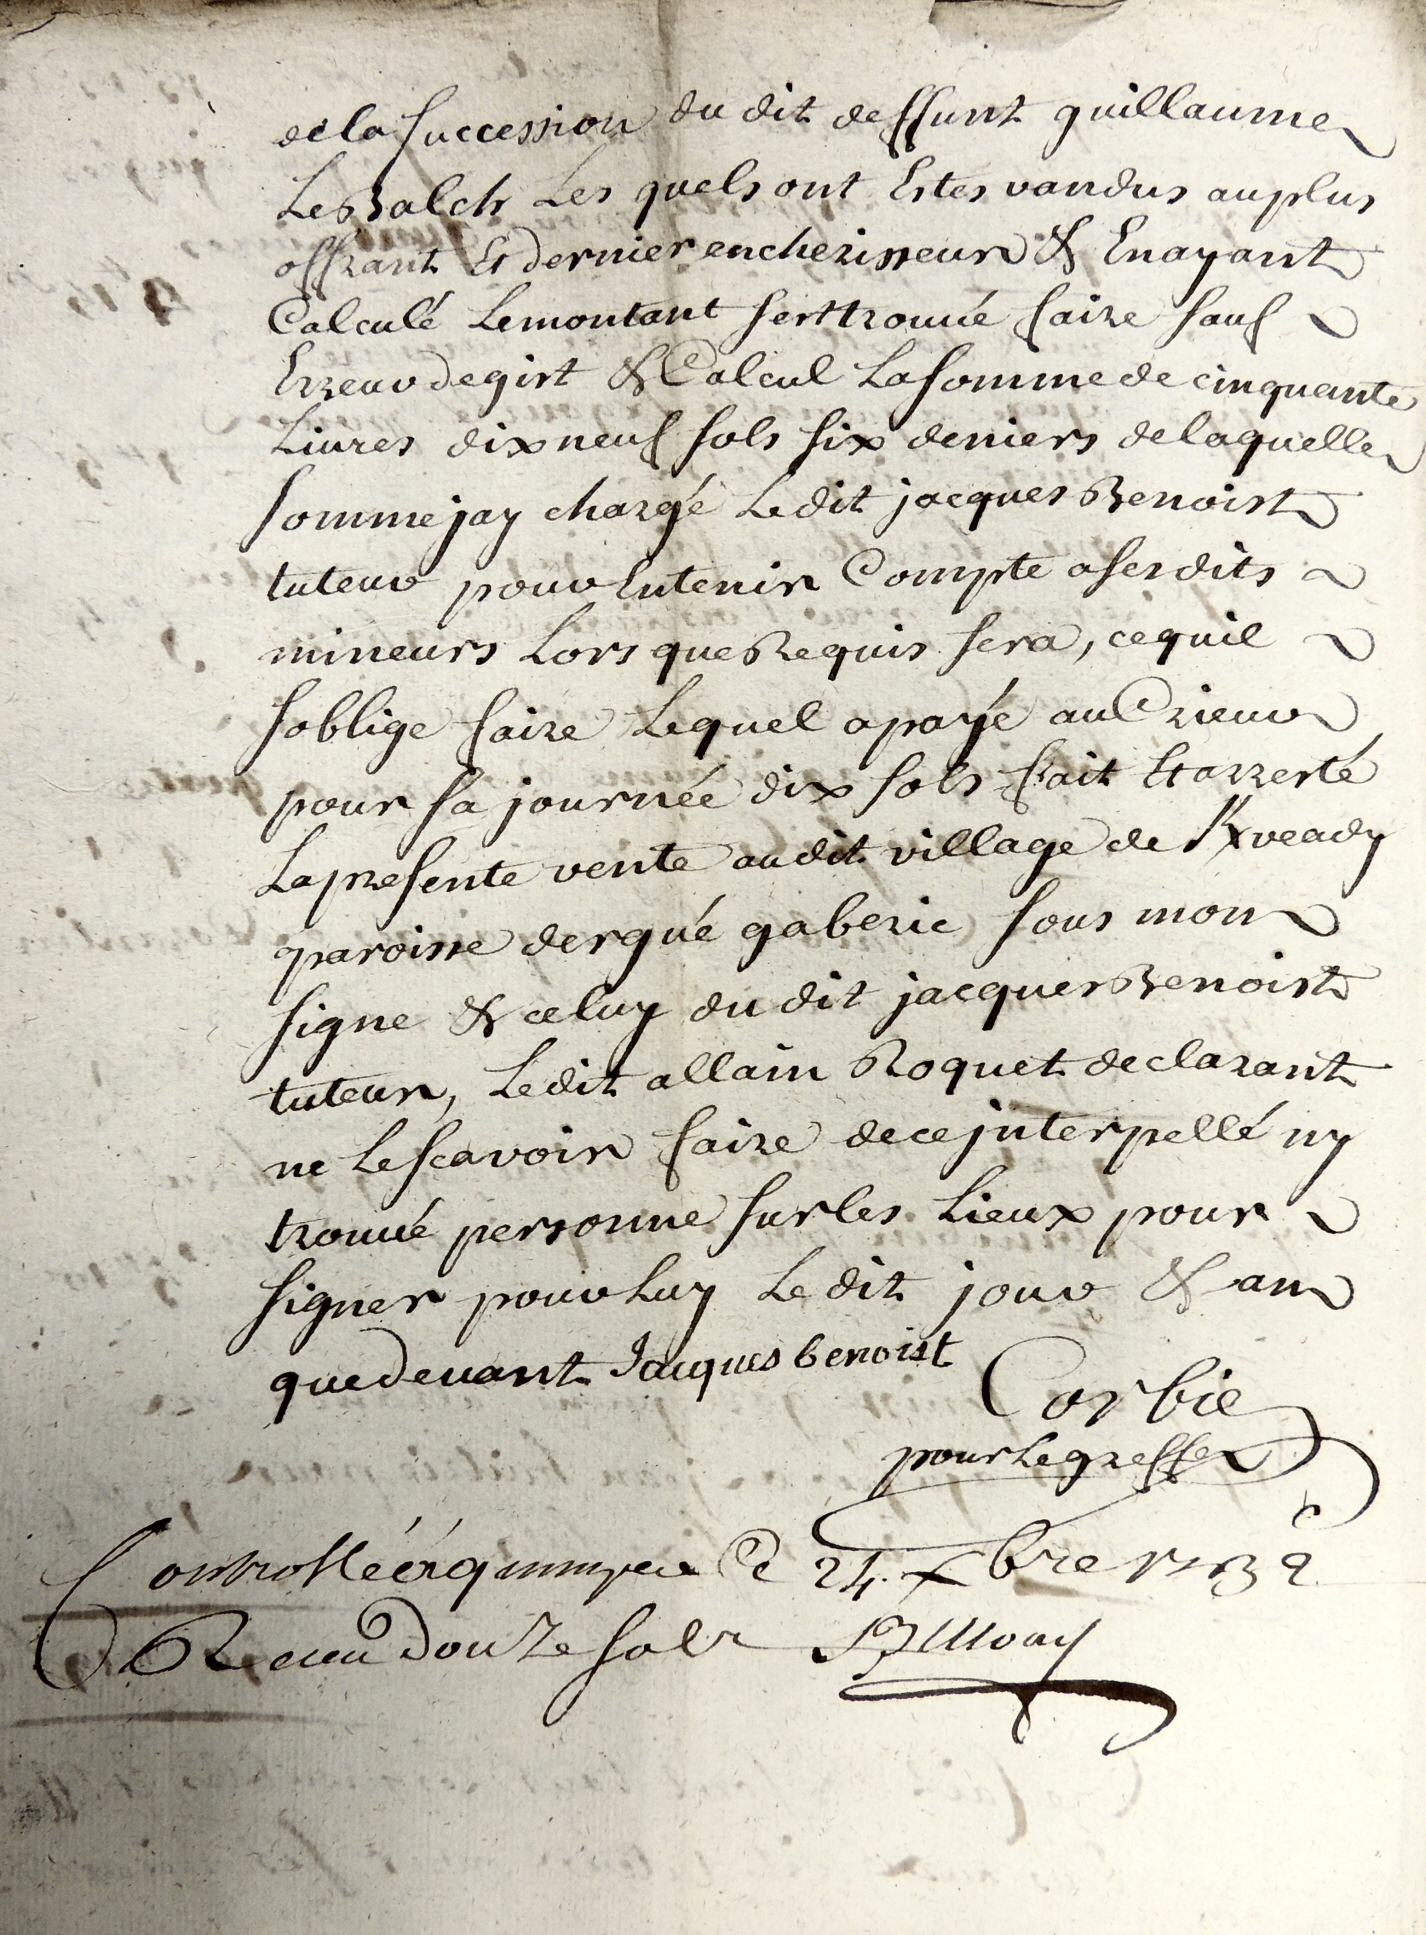 de la succession du dit deffunt guillaume
Le Balch Les quels ont Estes vandus au plus
offrant Et dernier encherisseur & En ayant
Calculé Le montant sest trouué faire sauf
Erreur de gist & Calcul La somme de cinquante
Liures dix neuf sols six deniers de laquelle
somme jay chargé Le dit jacques Benoist
tuteur pour En tenir Compte a ses dits
mineurs Lors que Requis sera, ce quil
soblige faire Lequel a payé au Crieur
pour sa journée dix sols fait Et arresté
La presente vente au dit village de Kveady
paroisse dergué gaberic sous mon
signe & celuy du dit jacques Benoist
tuteur, Le dit allain Roquet declarant
ne Le scavoir faire de ce jnterpellé ny
trouué personne sur les Lieux pour
signer pour Luy Le dit jour & an
que deuant Jacques benoist
Corbie
pour Le greffe
Controllé a quimper Le 24. xbre 1732
Receu Douze sols